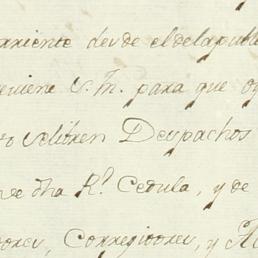 rriente desde el de la puble
eviene V. M. para que
se libren Despachos
dha Rl. Cedula, y de
sores, Corregidores, y